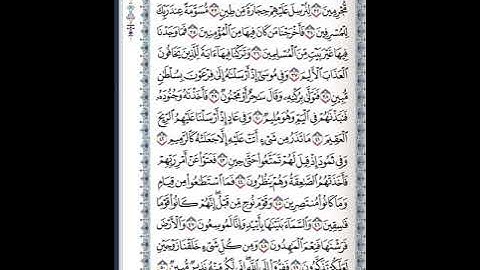 مُّجْرِمِينَ ٣٢ لِنُرْسِلَ عَلَيْهِمْ حِجَارَةً مِّن طِينٍ ٣٣ مُّسَوَّمَةً عِندَ رَبِّكَ
لِلْمُسْرِفِينَ ٣٤ فَأَخْرَجْنَا مَن كَانَ فِيهَا مِنَ ٱلْمُؤْمِنِينَ ٣٥ فَمَا وَجَدْنَا
فِيهَا غَيْرَ بَيْتٍ مِّنَ ٱلْمُسْلِمِينَ ٣٦ وَتَرَكْنَا فِيهَآ ءَايَةً لِّلَّذِينَ يَخَافُونَ
ٱلْعَذَابَ ٱلْأَلِيمَ ٣٧ وَفِى مُوسَىٰٓ إِذْ أَرْسَلْنَٰهُ إِلَىٰ فِرْعَوْنَ بِسُلْطَٰنٍ
مُّبِينٍ ٣٨ فَتَوَلَّىٰ بِرُكْنِهِۦ وَقَالَ سَٰحِرٌ أَوْ مَجْنُونٌ ٣٩ فَأَخَذْنَٰهُ وَجُنُودَهُۥ
فَنَبَذْنَٰهُمْ فِى ٱلْيَمِّ وَهُوَ مُلِيمٌ ٤٠ وَفِى عَادٍ إِذْ أَرْسَلْنَا عَلَيْهِمُ ٱلرِّيحَ
ٱلْعَقِيمَ ٤١ مَا تَذَرُ مِن شَىْءٍ أَتَتْ عَلَيْهِ إِلَّا جَعَلَتْهُ كَٱلرَّمِيمِ ٤٢
وَفِى ثَمُودَ إِذْ قِيلَ لَهُمْ تَمَتَّعُوا۟ حَتَّىٰ حِينٍ ٤٣ فَعَتَوْا۟ عَنْ أَمْرِ رَبِّهِمْ
فَأَخَذَتْهُمُ ٱلصَّٰعِقَةُ وَهُمْ يَنظُرُونَ ٤٤ فَمَا ٱسْتَطَٰعُوا۟ مِن قِيَامٍ
وَمَا كَانُوا۟ مُنتَصِرِينَ ٤٥ وَقَوْمَ نُوحٍ مِّن قَبْلُ إِنَّهُمْ كَانُوا۟ قَوْمًا
فَٰسِقِينَ ٤٦ وَٱلسَّمَآءَ بَنَيْنَٰهَا بِأَيْي۟دٍ وَإِنَّا لَمُوسِعُونَ ٤٧ وَٱلْأَرْضَ
فَرَشْنَٰهَا فَنِعْمَ ٱلْمَٰهِدُونَ ٤٨ وَمِن كُلِّ شَىْءٍ خَلَقْنَا زَوْجَيْنِ
لَعَلَّكُمْ تَذَكَّرُونَ ٤٩ فَفِرُّوٓا۟ إِلَى ٱللَّهِ إِنِّى لَكُم مِّنْهُ نَذِيرٌ مُّبِينٌ ٥٠